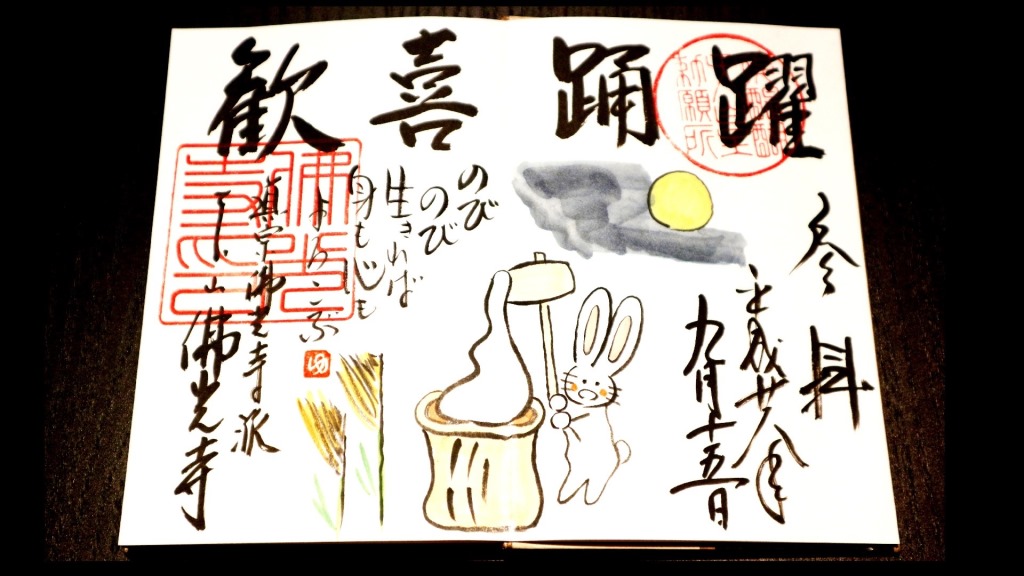 歓喜踊躍
参拝
平成廿八年
九月十五日
のび
のび
生きれば
身も心も
よろこぶ
真宗佛光寺派
本山佛光寺
勅願所